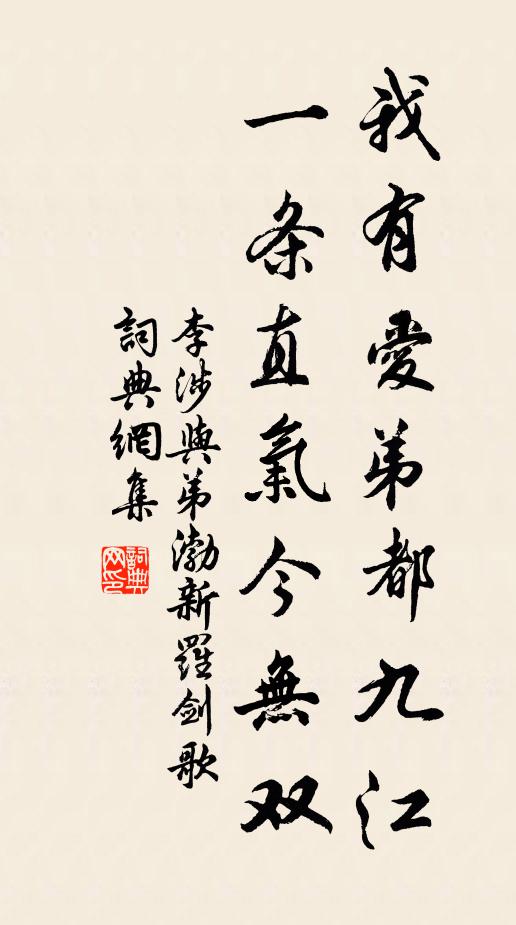 我有愛弟都九江
一条直氣今無双
李涉與弟渤新羅剑歌
詞典網集
詞典網印